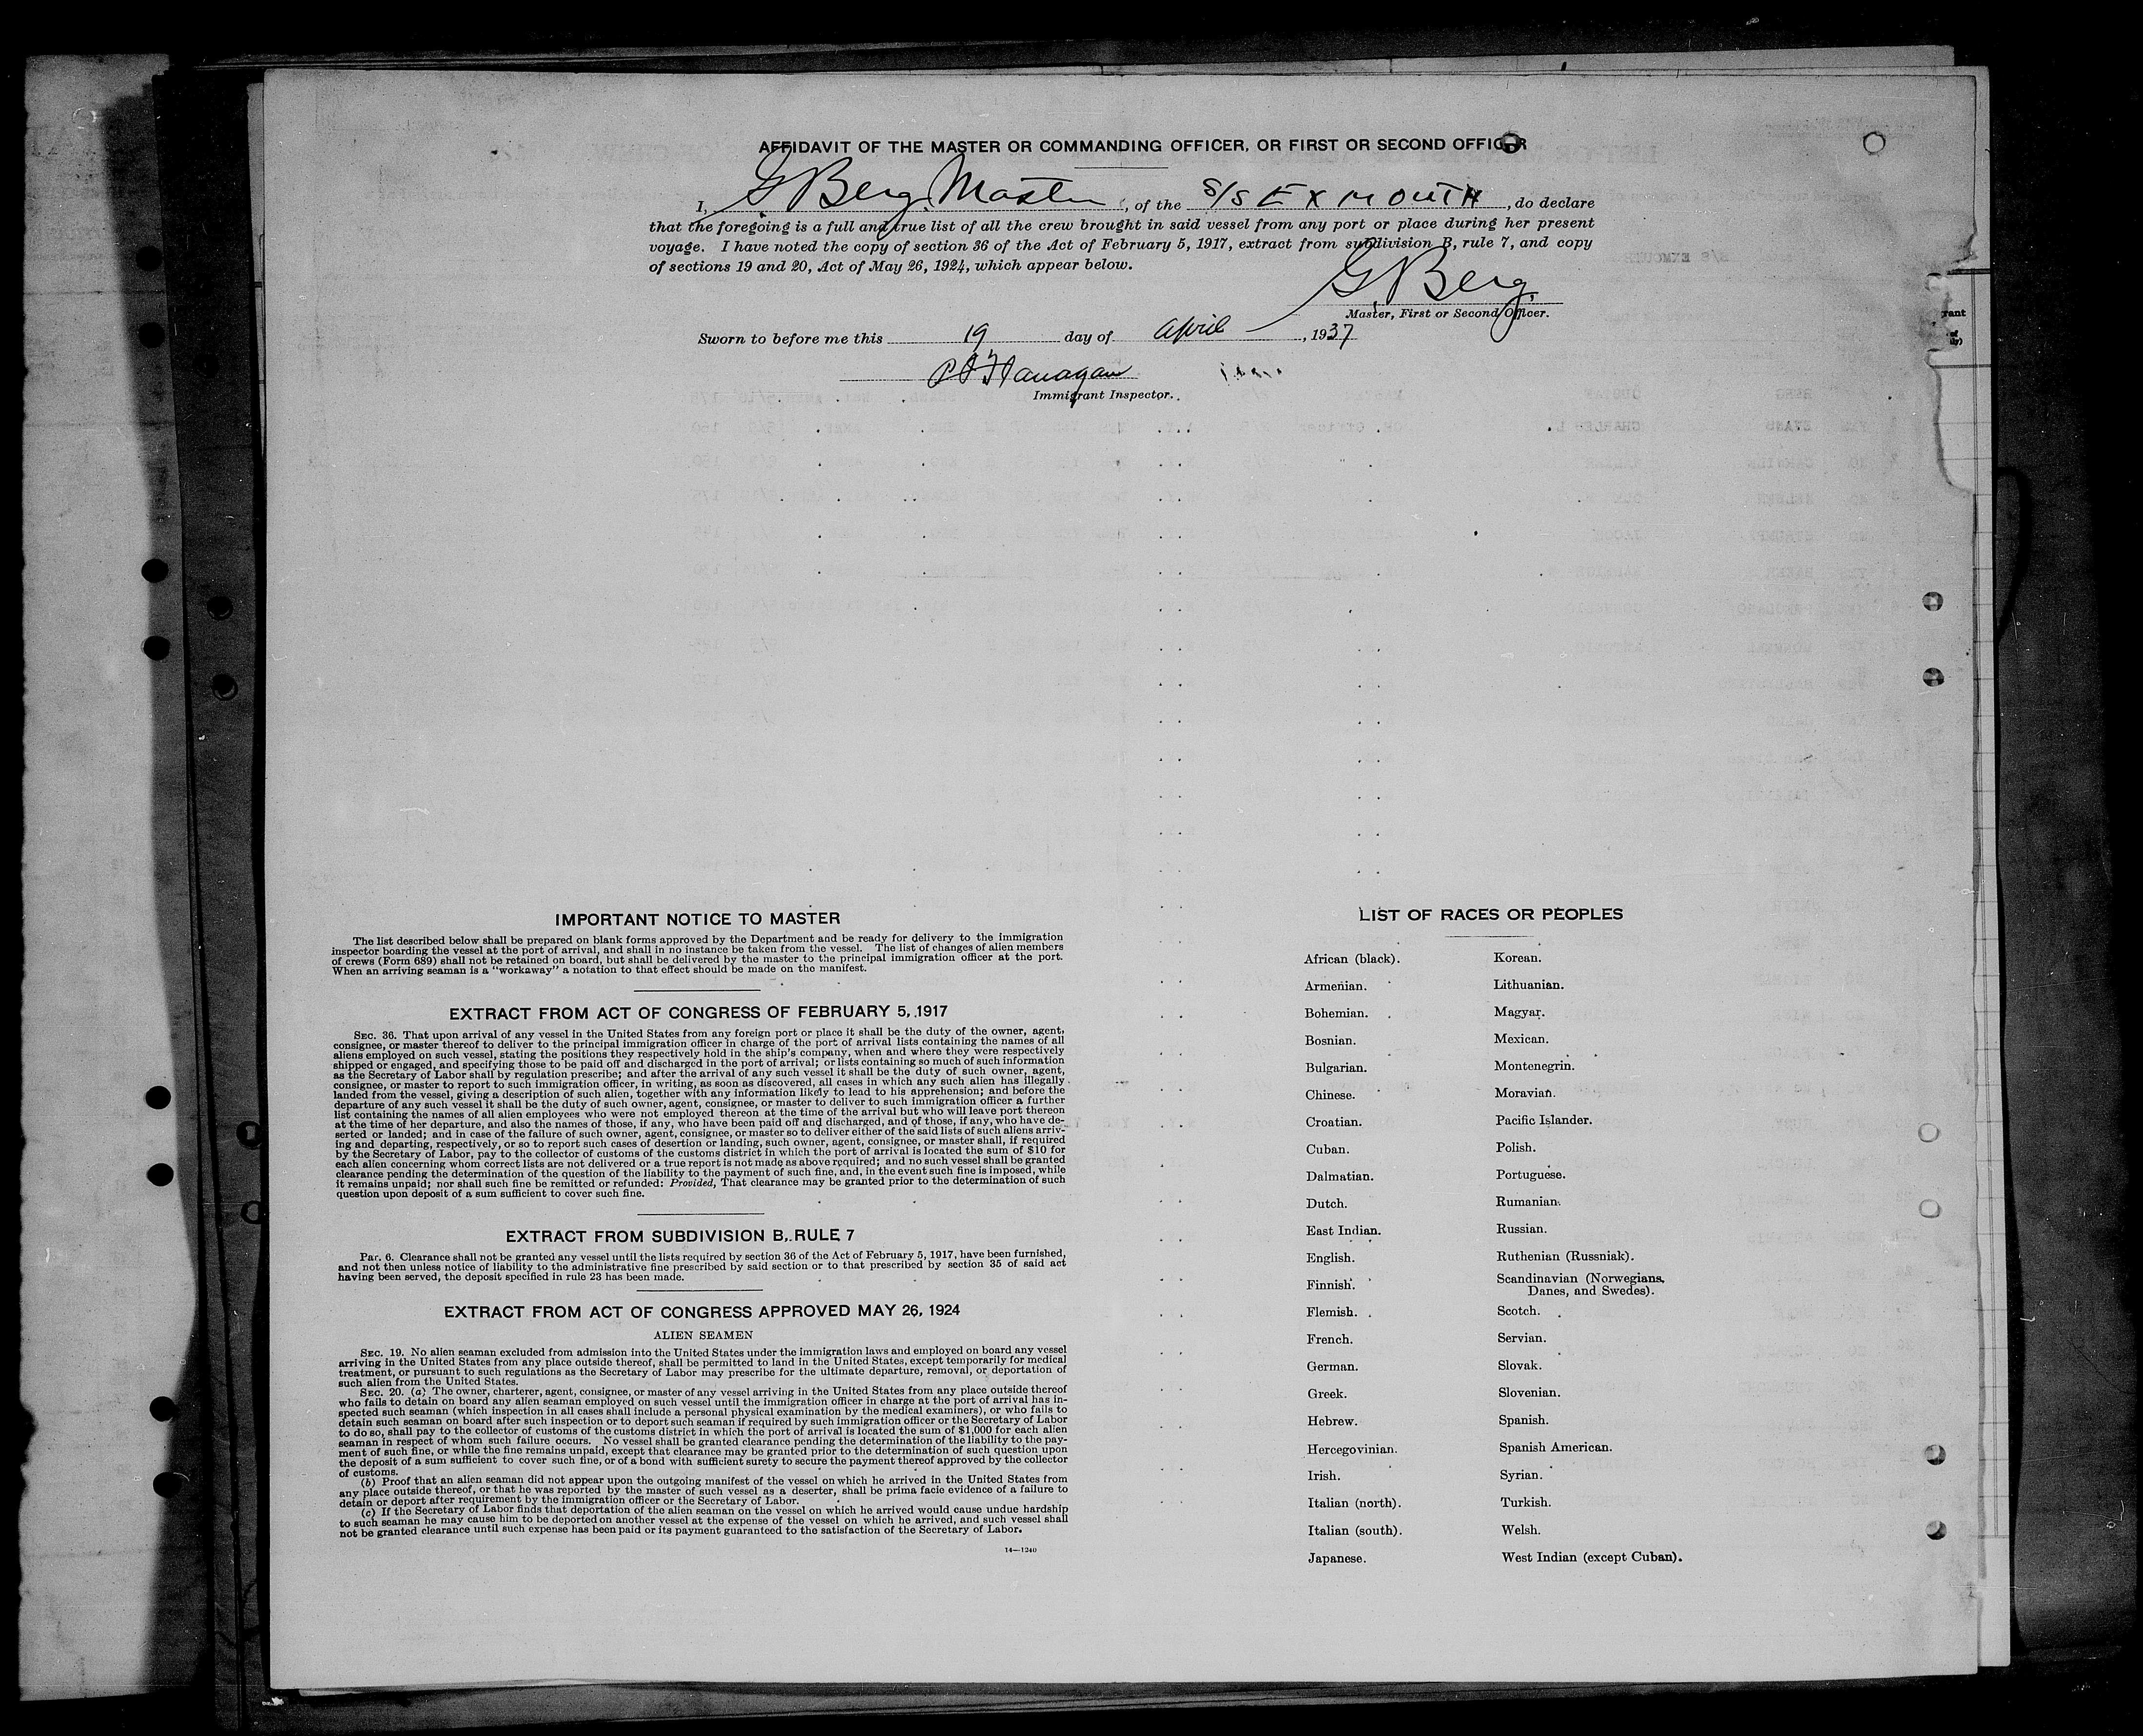 AFFIDAVIT OF THE MASTER OR COMMANDING OFFICER, OR FIRST OR SECOND OFFICER
I, G Berg, Master, of the S/S EXMOUTH, do declare
that the foregoing is a full and true list of all the crew brought in said vessel from any port or place during her present
voyage. I have noted the copy of section 36 of the Act of February 5, 1917, extract from subdivision B, rule 7, and copy
of sections 19 and 20, Act of May 26, 1924, which appear below.
G. Berg.
Master, First or Second Officer.
Sworn to before me this 19 day of April, 1937
Flanagan
Immigrant Inspector.
IMPORTANT NOTICE TO MASTER
The list described below shall be prepared on blank forms approved by the Department and be ready for delivery to the immigration
inspector boarding the vessel at the port of arrival, and shall in no instance be taken from the vessel. The list of changes of alien members
of crews (Form 689) shall not be retained on board, but shall be delivered by the master to the principal immigration officer at the port.
When an arriving seaman is a "workaway" a notation to that effect should be made on the manifest.
EXTRACT FROM ACT OF CONGRESS OF FEBRUARY 5, 1917
SEC. 36. That upon arrival of any vessel in the United States from any foreign port or place it shall be the duty of the owner, agent,
consignee, or master thereof to deliver to the principal immigration officer in charge of the port of arrival lists containing the names of all
aliens employed on such vessel, stating the positions they respectively hold in the ship's company, when and where they were respectively
shipped or engaged, and specifying those to be paid off and discharged in the port of arrival; or lists containing so much of such information
as the Secretary of Labor shall by regulation prescribe; and after the arrival of any such vessel it shall be the duty of such owner, agent,
consignee, or master to report to such immigration officer, in writing, as soon as discovered, all cases in which any such alien has illegally
landed from the vessel, giving a description of such alien, together with any information likely to lead to his apprehension; and before the
departure of any such vessel it shall be the duty of such owner, agent, consignee, or master to deliver to such immigration officer a further
list containing the names of all alien employees who were not employed thereon at the time of the arrival but who will leave port thereon
at the time of her departure, and also the names of those, if any, who have been paid off and discharged, and of those, if any, who have de-
serted or landed; and in case of the failure of such owner, agent, consignee, or master so to deliver either of the said lists of such aliens arriv-
ing and departing, respectively, or so to report such cases of desertion or landing, such owner, agent, consignee, or master shall, if required
by the Secretary of Labor, pay to the collector of customs of the customs district in which the port of arrival is located the sum of $10 for
each alien concerning whom correct lists are not delivered or a true report is not made as above required; and no such vessel shall be granted
clearance pending the determination of the question of the liability to the payment of such fine, and, in the event such fine is imposed, while
it remains unpaid; nor shall such fine be remitted or refunded: Provided, That clearance may be granted prior to the determination of such
question upon deposit of a sum sufficient to cover such fine.
EXTRACT FROM SUBDIVISION B, RULE 7
Par. 6. Clearance shall not be granted any vessel until the lists required by section 36 of the Act of February 5, 1917, have been furnished,
and not then unless notice of liability to the administrative fine prescribed by said section or to that prescribed by section 35 of said act
having been served, the deposit specified in rule 23 has been made.
EXTRACT FROM ACT OF CONGRESS APPROVED MAY 26, 1924
ALIEN SEAMEN
SEC. 19. No alien seaman excluded from admission into the United States under the immigration laws and employed on board any vessel
arriving in the United States from any place outside thereof, shall be permitted to land in the United States, except temporarily for medical
treatment, or pursuant to such regulations as the Secretary of Labor may prescribe for the ultimate departure, removal, or deportation of
such alien from the United States.
SEC. 20. (a) The owner, charterer, agent, consignee, or master of any vessel arriving in the United States from any place outside thereof
who fails to detain on board any alien seaman employed on such vessel until the immigration officer in charge at the port of arrival has in-
spected such seaman (which inspection in all cases shall include a personal physical examination by the medical examiners), or who fails to
detain such seaman on board after such inspection or to deport such seaman if required by such immigration officer or the Secretary of Labor
to do so, shall pay to the collector of customs of the customs district in which the port of arrival is located the sum of $1,000 for each alien
seaman in respect of whom such failure occurs. No vessel shall be granted clearance pending the determination of the liability to the pay-
ment of such fine, or while the fine remains unpaid, except that clearance may be granted prior to the determination of such question upon
the deposit of a sum sufficient to cover such fine, or of a bond with sufficient surety to secure the payment thereof approved by the collector
of customs.
(b) Proof that an alien seaman did not appear upon the outgoing manifest of the vessel on which he arrived in the United States from
any place outside thereof, or that he was reported by the master of such vessel as a deserter, shall be prima facie evidence of a failure to
detain or deport after requirement by the immigration officer or the Secretary of Labor.
(c) If the Secretary of Labor finds that deportation of the alien seaman on the vessel on which he arrived would cause undue hardship
to such seaman he may cause him to be deported on another vessel at the expense of the vessel on which he arrived, and such vessel shall
not be granted clearance until such expense has been paid or its payment guaranteed to the satisfaction of the Secretary of Labor.
14—1240
LIST OF RACES OR PEOPLES
African (black). Korean.
Armenian. Lithuanian.
Bohemian. Magyar.
Bosnian. Mexican.
Bulgarian. Montenegrin.
Chinese. Moravian.
Croatian. Pacific Islander.
Cuban. Polish.
Dalmatian. Portuguese.
Dutch. Rumanian.
East Indian. Russian.
English. Ruthenian (Russniak).
Finnish. Scandinavian (Norwegians,
Danes, and Swedes).
Flemish. Scotch.
French. Servian.
German. Slovak.
Greek. Slovenian.
Hebrew. Spanish.
Hercegovinian. Spanish American.
Irish. Syrian.
Italian (north). Turkish.
Italian (south). Welsh.
Japanese. West Indian (except Cuban).